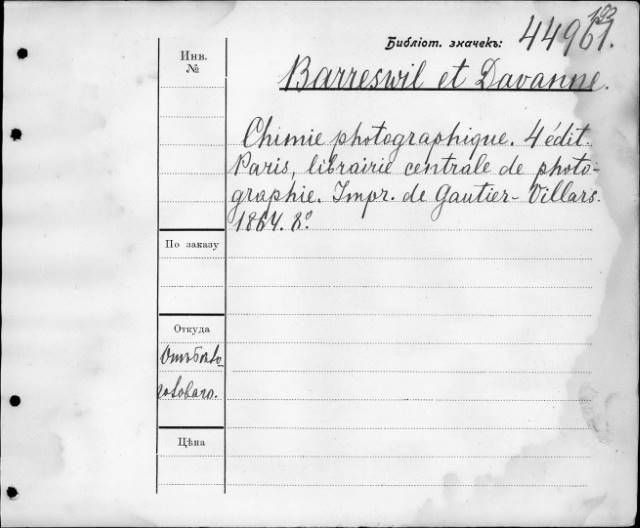 Библіот. значекъ: 44967.
Инв.
№
Barreswil et Davanne.
Chimie photographique. 4 édit.
Paris, librairie centrale de photo-
graphie. Impr. de Gautier-Villars.
1864. 8°
По заказу
Откуда
Цѣна